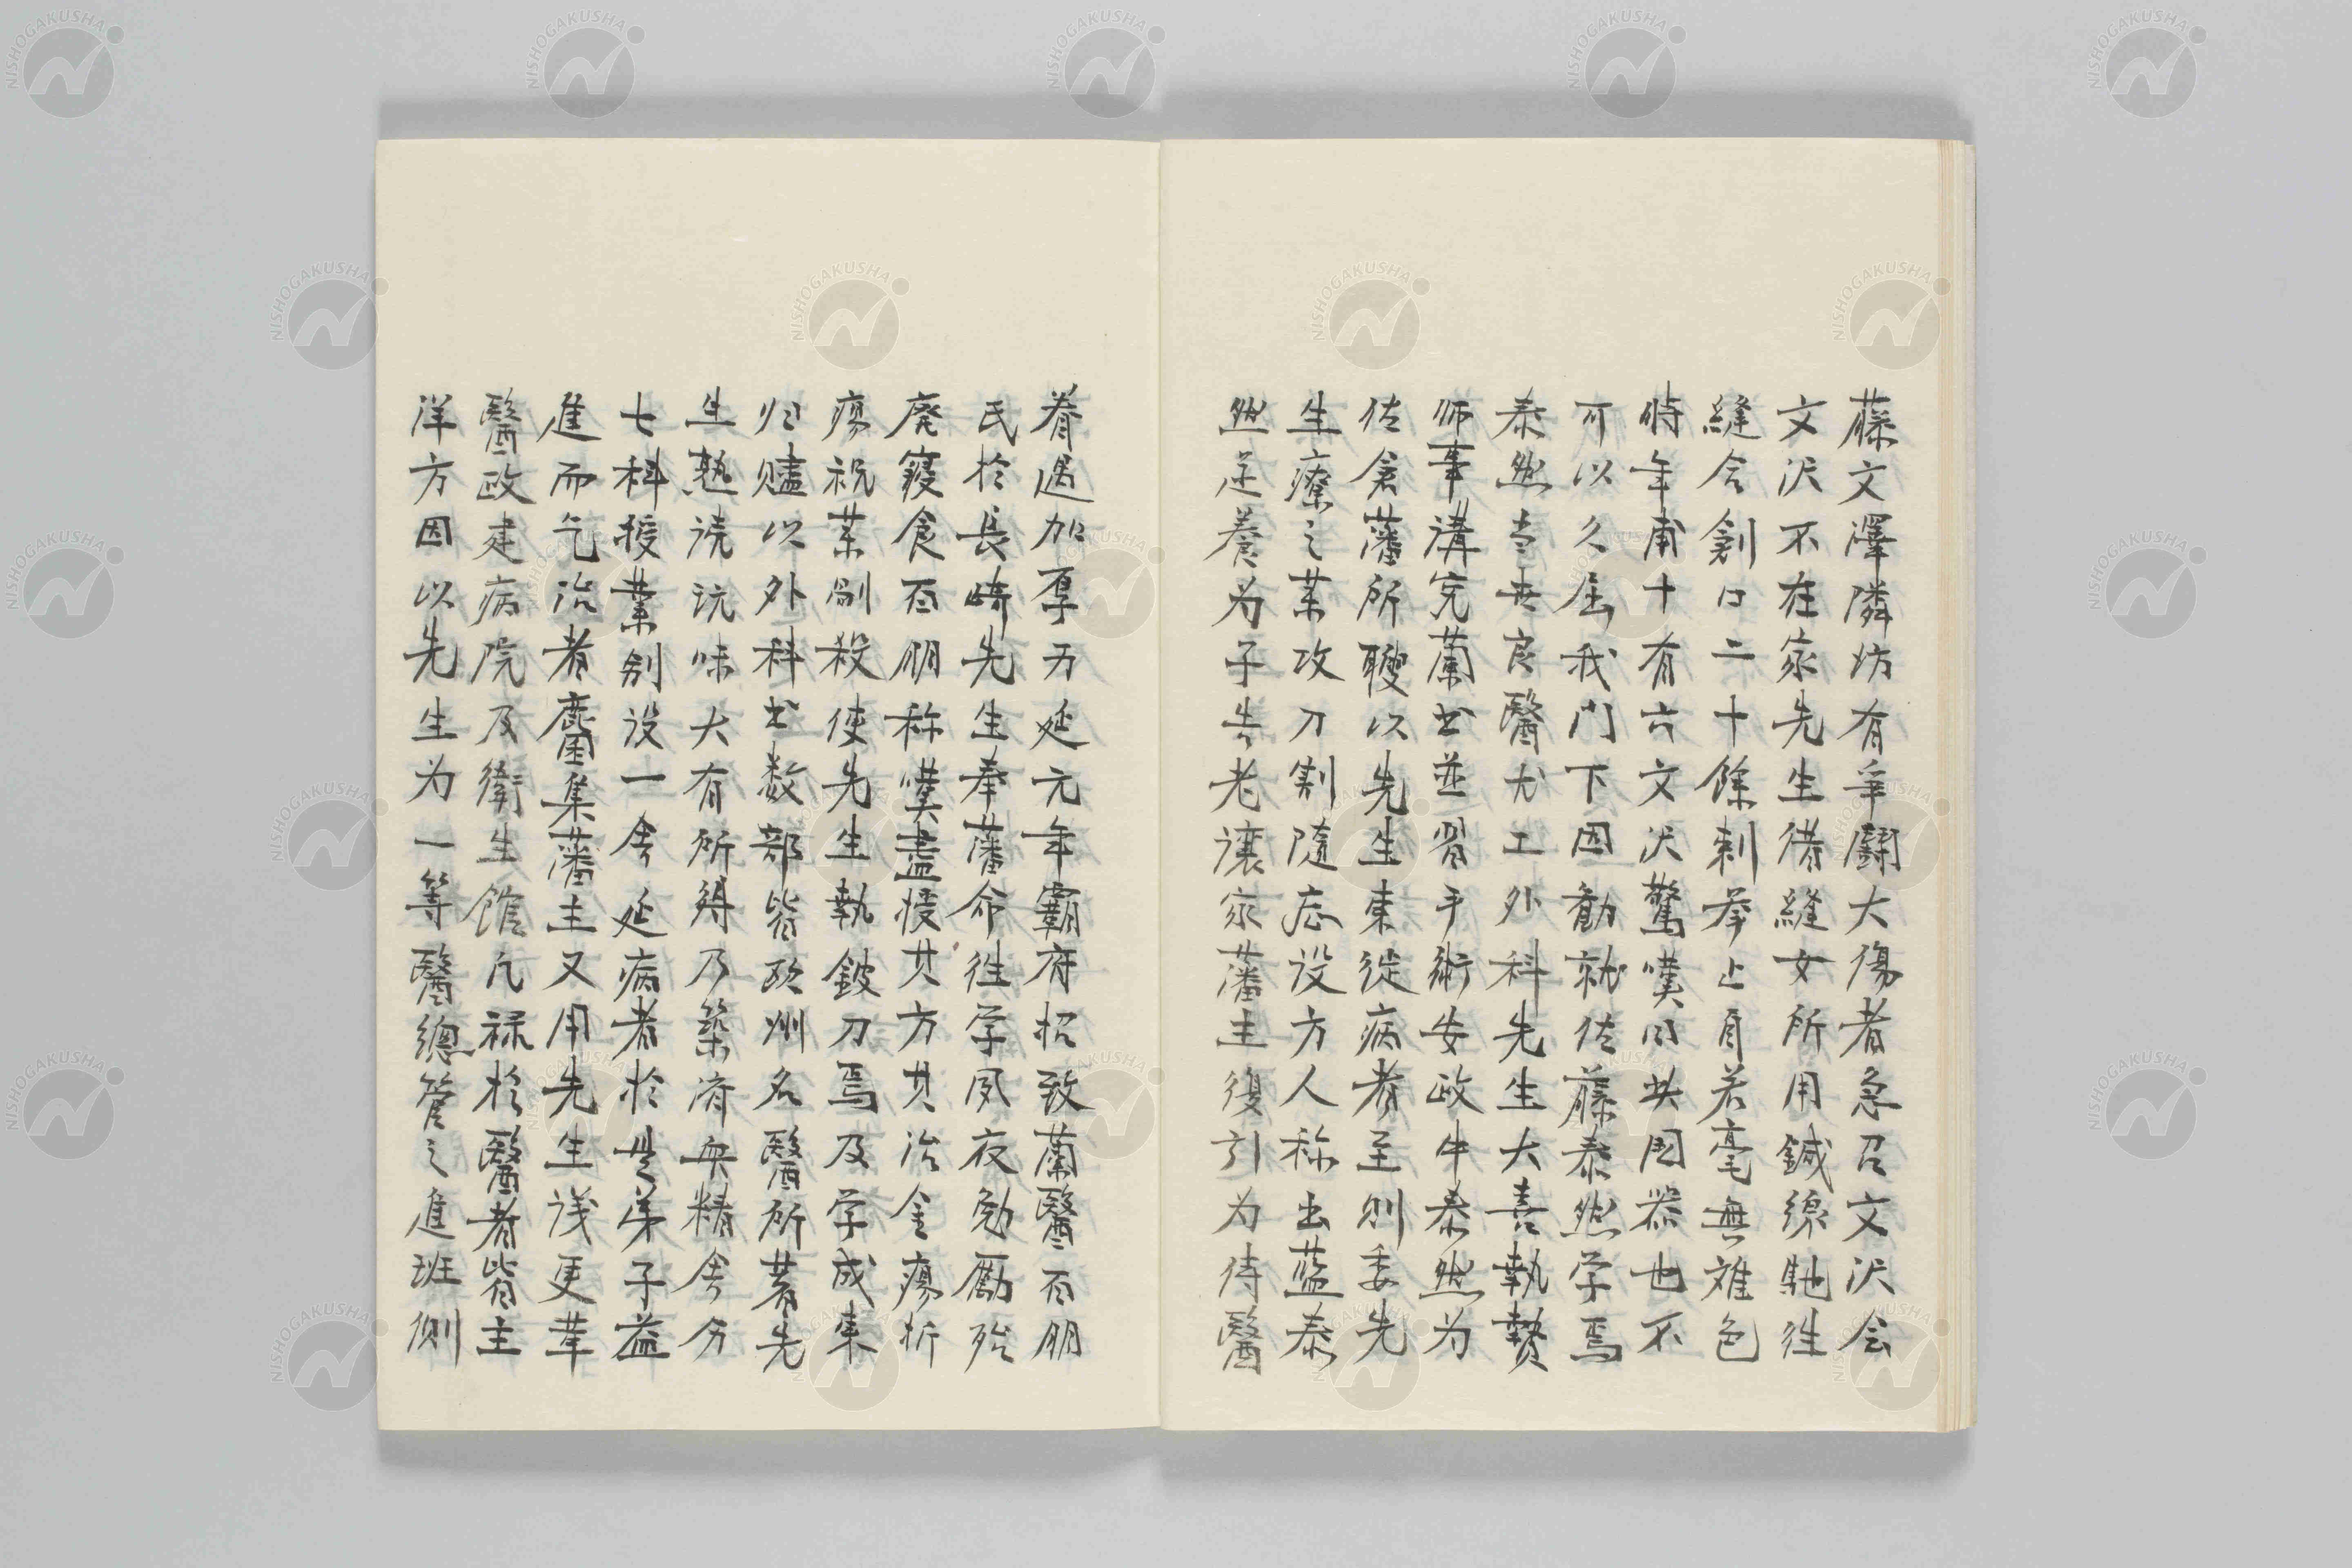 藤文澤隣坊有争闘大傷者急召文沢会
文沢不在家先生徣縫女所用鍼線馳往
縫合創口二十餘剌挙止自若毫無難色
時年甫十有六文沢驚嘆曰此国器也不
可以久屈我門下因勧就佐藤泰然学焉
泰然当世良醫尤工外科先生大喜執贄
師事講究蘭书並習手術安政中泰然为
佐倉藩所聘以先生東従病者至則委先
生療之薬攻刀割随症设方人称出藍泰
然迋養为子告老譲家藩主復引为侍醫
眷遇加厚万延元年霸府招致蘭醫百朋
氏於長崎先生奉藩命往学夙夜勉励殆
廃寝食百朋称嘆盡授其方其治金瘍折
瘍祝薬劀殺使先生執鈹刀焉及学成来
归贐以外科书数部皆欧州名醫所著先
生熟読玩味大有所得乃築済衆精舎分
七科授業别设一舎延病者於是弟子益
進而乞治者麕集藩主又用先生議更革
醫政建病院及衛生館凡禄於醫者皆主
洋方因以先生为一等醫總管之進班側
NISHOGAKUSHA